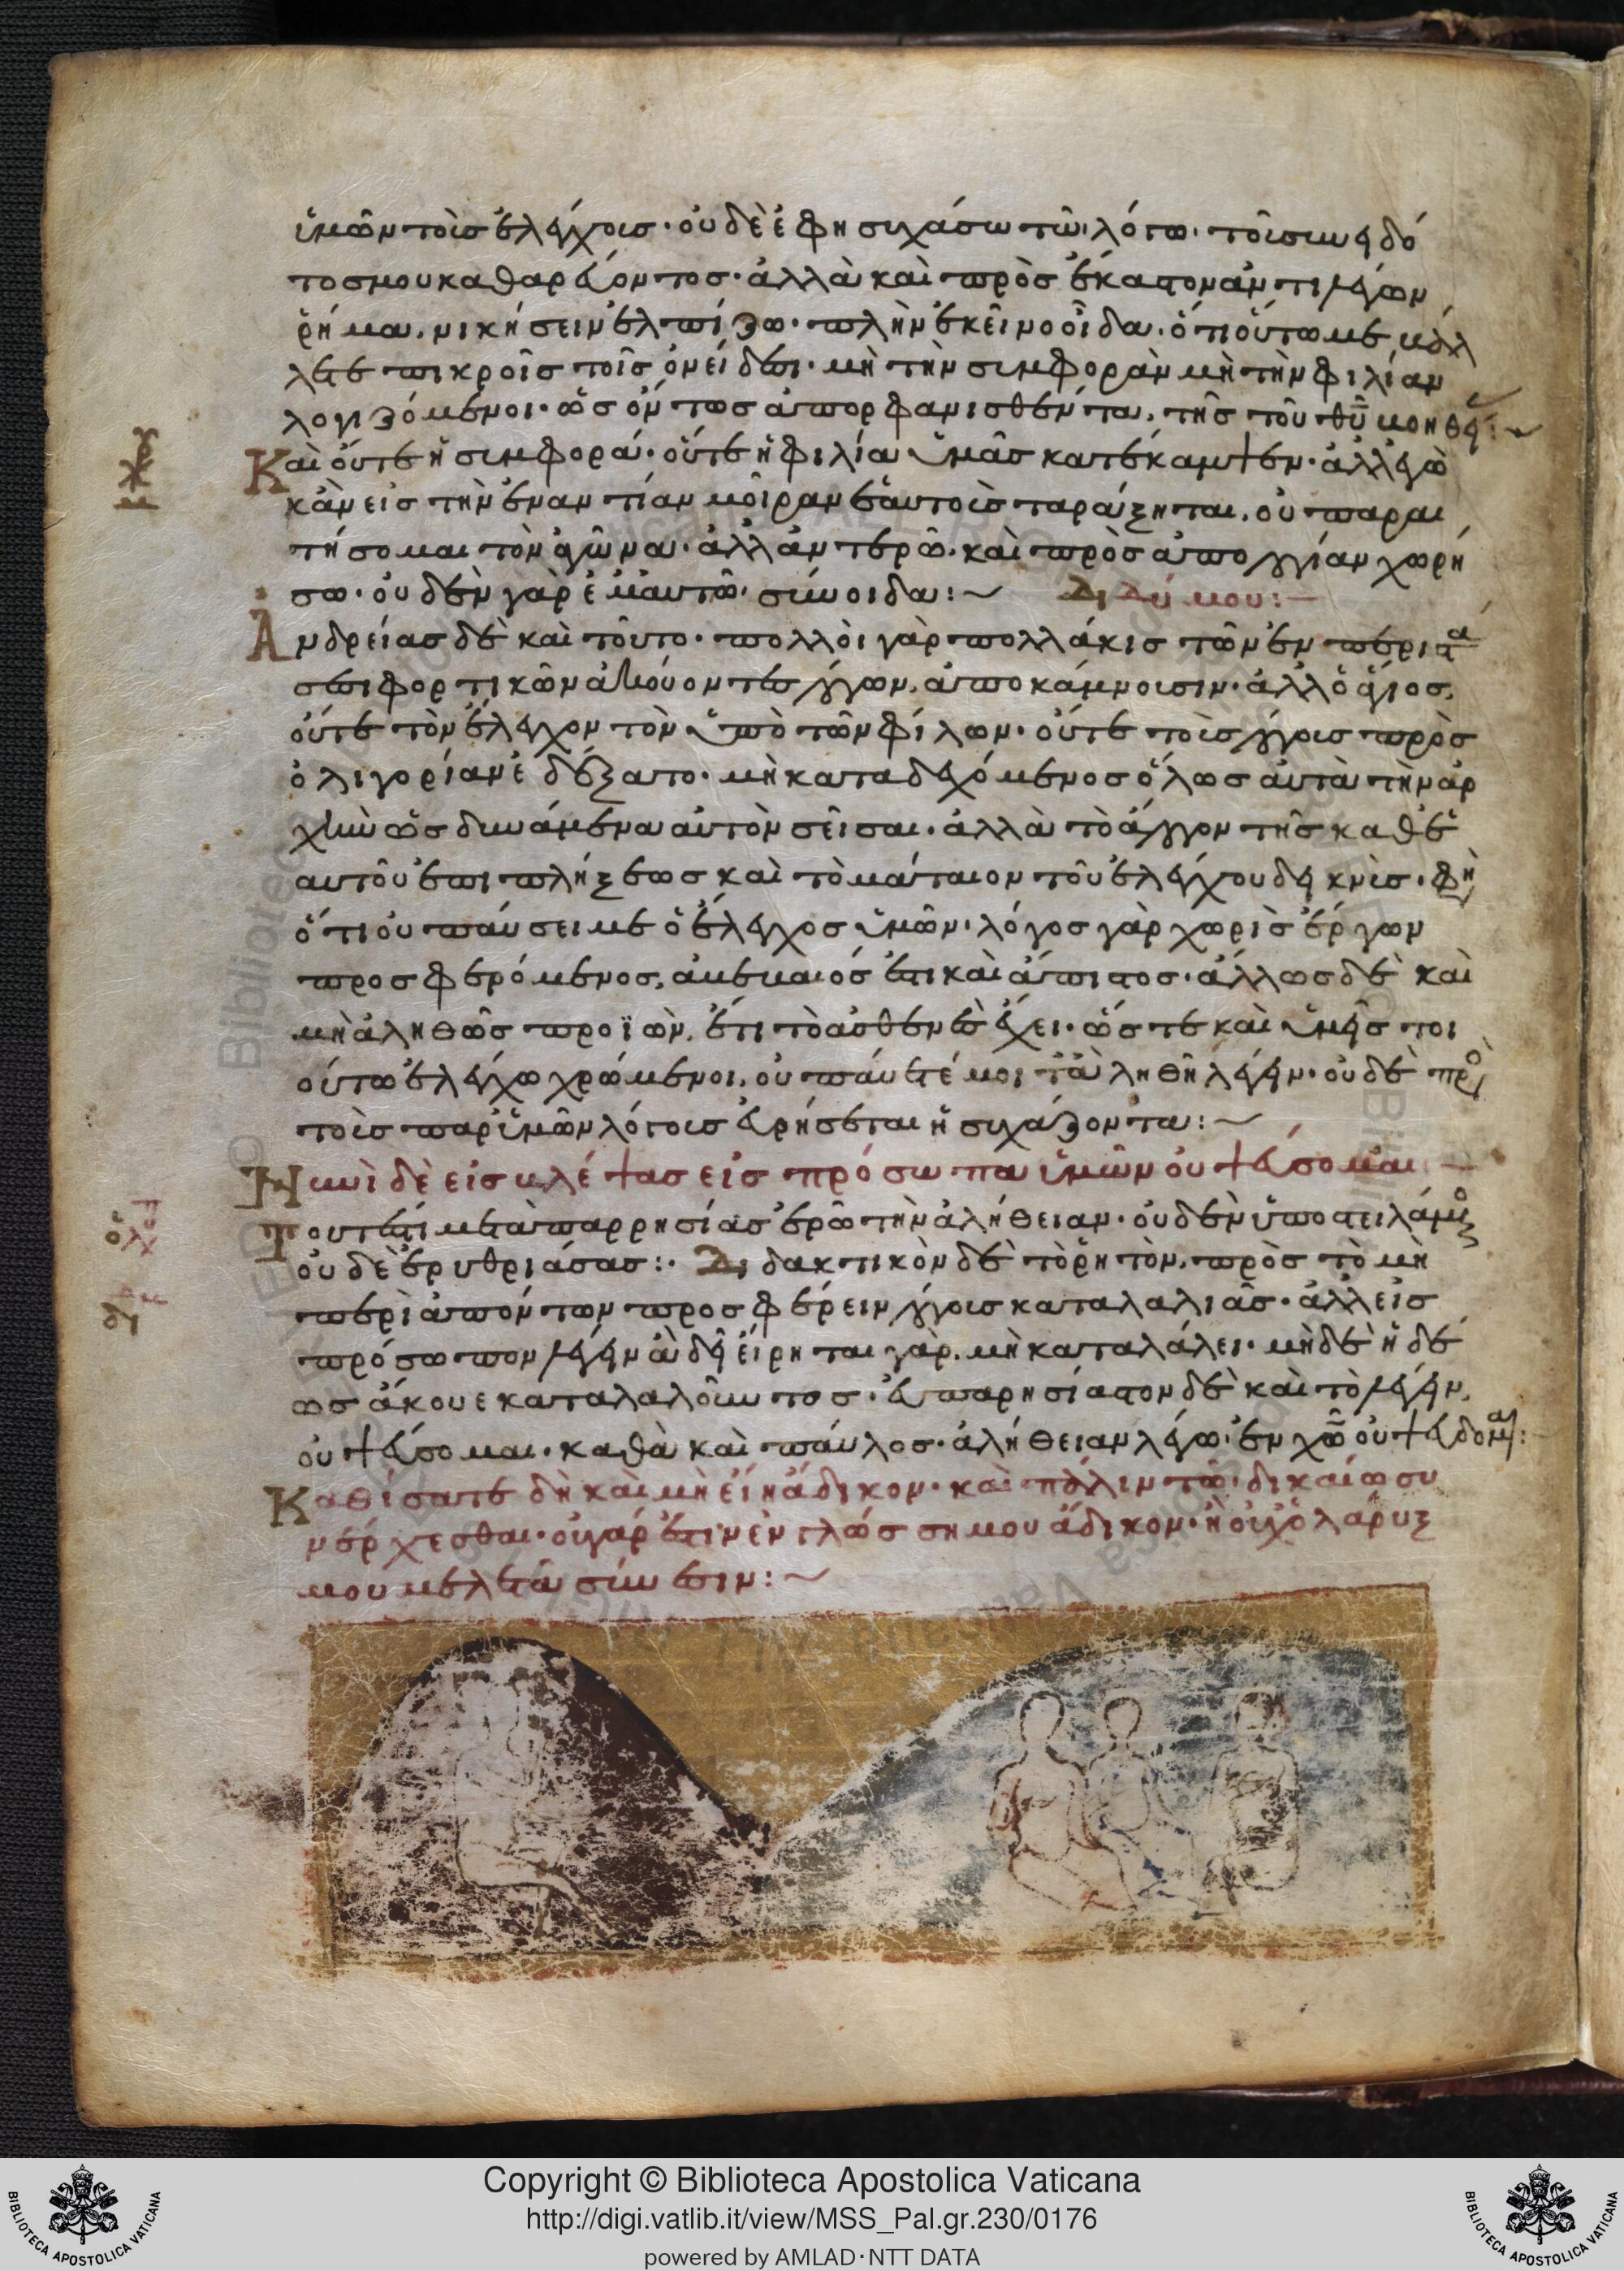 ὑμῶν τοῖς ἐλέγχοις· οὐδὲ ἐφησυχάσω τῷ λόγῳ· τοῖς συνειδό
τος μου καθαρεύοντος· ἀλλὰ καὶ πρὸς ἕκαστον ἀντιλέγων
ῥῆμα, νικήσειν ἐλπίζω· πλὴν ἐκεῖνο οἶδα· ὅτι οὕτω με
τε πικροῖς τοῖς ὀνείδεσι· μὴ τὴν συμφορὰν μὴ τὴν φιλίαν
λογιζόμενοι· ὡς ὄντως ἀπορφανισθέντα, τῆς τοῦ θῦ
Καὶ οὔτε ἡ συμφορά· οὔτε ἡ φιλία ὑμᾶς κατέκαμψεν· ἀλλ' ἐγὼ
κἂν εἰς τὴν ἐναντίαν μοῖραν ἑαυτοὺς ταράξηται, οὐ παραι
τήσομαι τὸν ἀγῶνα· ἀλλ' ἀντερῶ· καὶ πρὸς ἀπολογίαν χωρή
σω· οὐδὲν γὰρ ἐμαυτῷ σύνοιδα:~ Διδύμου:–
Ἀνδρείας δὲ καὶ τοῦτο· πολλοὶ γὰρ πολλάκις τῶν ἐν περιστά
σεσι φορτικῶν ἀκούοντες λόγων, ἀποκάμνουσιν· ἀλλ' ὁ ἅγιος,
οὔτε τὸν ἔλεγχον τὸν ὑπὸ τῶν φίλων· οὔτε τοὺς λόγους πρὸς
ὀλιγορίαν ἐδέξατο· μὴ καταδεχόμενος ὅλως αὐτὰ τὴν ἀρ
χὴν ὡς δυνάμενα αὐτὸν σεῖσαι· ἀλλὰ τὸ ἄλογον τῆς καθ' ἑ
αυτοῦ ἐπιπλήξεως καὶ τὸ μάταιον τοῦ ἐλέγχου δεικνὺς· φη
ὅτι οὐ παύσει με ὁ ἔλεγχος ὑμῶν· λόγος γὰρ χωρὶς ἔργων
προσφερόμενος, ἀνέμαιός ἐστι καὶ ἄπιστος· ἄλλως δὲ καὶ
μὴ ἀληθῶς προϊὼν, ἔτι τὸ ἀσθενὲς ἔχει· ὥστε καὶ ὑμεῖς τοι
ούτῳ ἐλέγχῳ χρώμενοι, οὐ παύσετέ μοι τἀληθῆ λέγειν· οὐδὲ πρὸς
τοὺς παρ' ὑμῶν λόγους εὑρήσεται ἡσυχάζοντα:~
Νυνὶ δὲ εἰσβλέψας εἰς πρόσωπα ὑμῶν οὐ ψεύσομαι
Τουτέστι μετὰ παρρησίας ἐρῶ τὴν ἀλήθειαν· οὐδὲν ὑποστειλάμενος
οὐδὲ ἐρυθριάσας:· Διδακτικὸν δὲ τὸ ῥητὸν, πρὸς τὸ μὴ
περὶ ἀπόντων προσφέρειν λόγοις καταλαλιᾶς· ἀλλ' εἰς
πρόσωπον λέγειν ἃ δεῖ εἴρηται γὰρ, μὴ καταλάλει· μηδὲ ἡδέ
ως ἄκουε καταλαλοῦντος· εὐπαρησίαστον δὲ καὶ τὸ λέγειν,
οὐ ψεύσομαι· καθὰ καὶ παῦλος· ἀλήθειαν λέγω ἐν χῶ οὐ ψεύδομαι:
Καθίσατε δὴ καὶ μὴ εἴη ἄδικον· καὶ πάλιν τῷ δικαίῳ συ
νέρχεσθαι· οὐ γάρ ἐστιν ἐν γλώσσῃ μου ἄδικον· ἢ οὐχ' ὁ λάρυγξ
μου μελετᾷ σύνεσιν:~
Copyright © Biblioteca Apostolica Vaticana
http://digi.vatlib.it/view/MSS_Pal.gr.230/0176
powered by AMLAD·NTT DATA
BIBLIOTECA APOSTOLICA VATICANA
BIBLIOTECA APOSTOLICA VATICANA